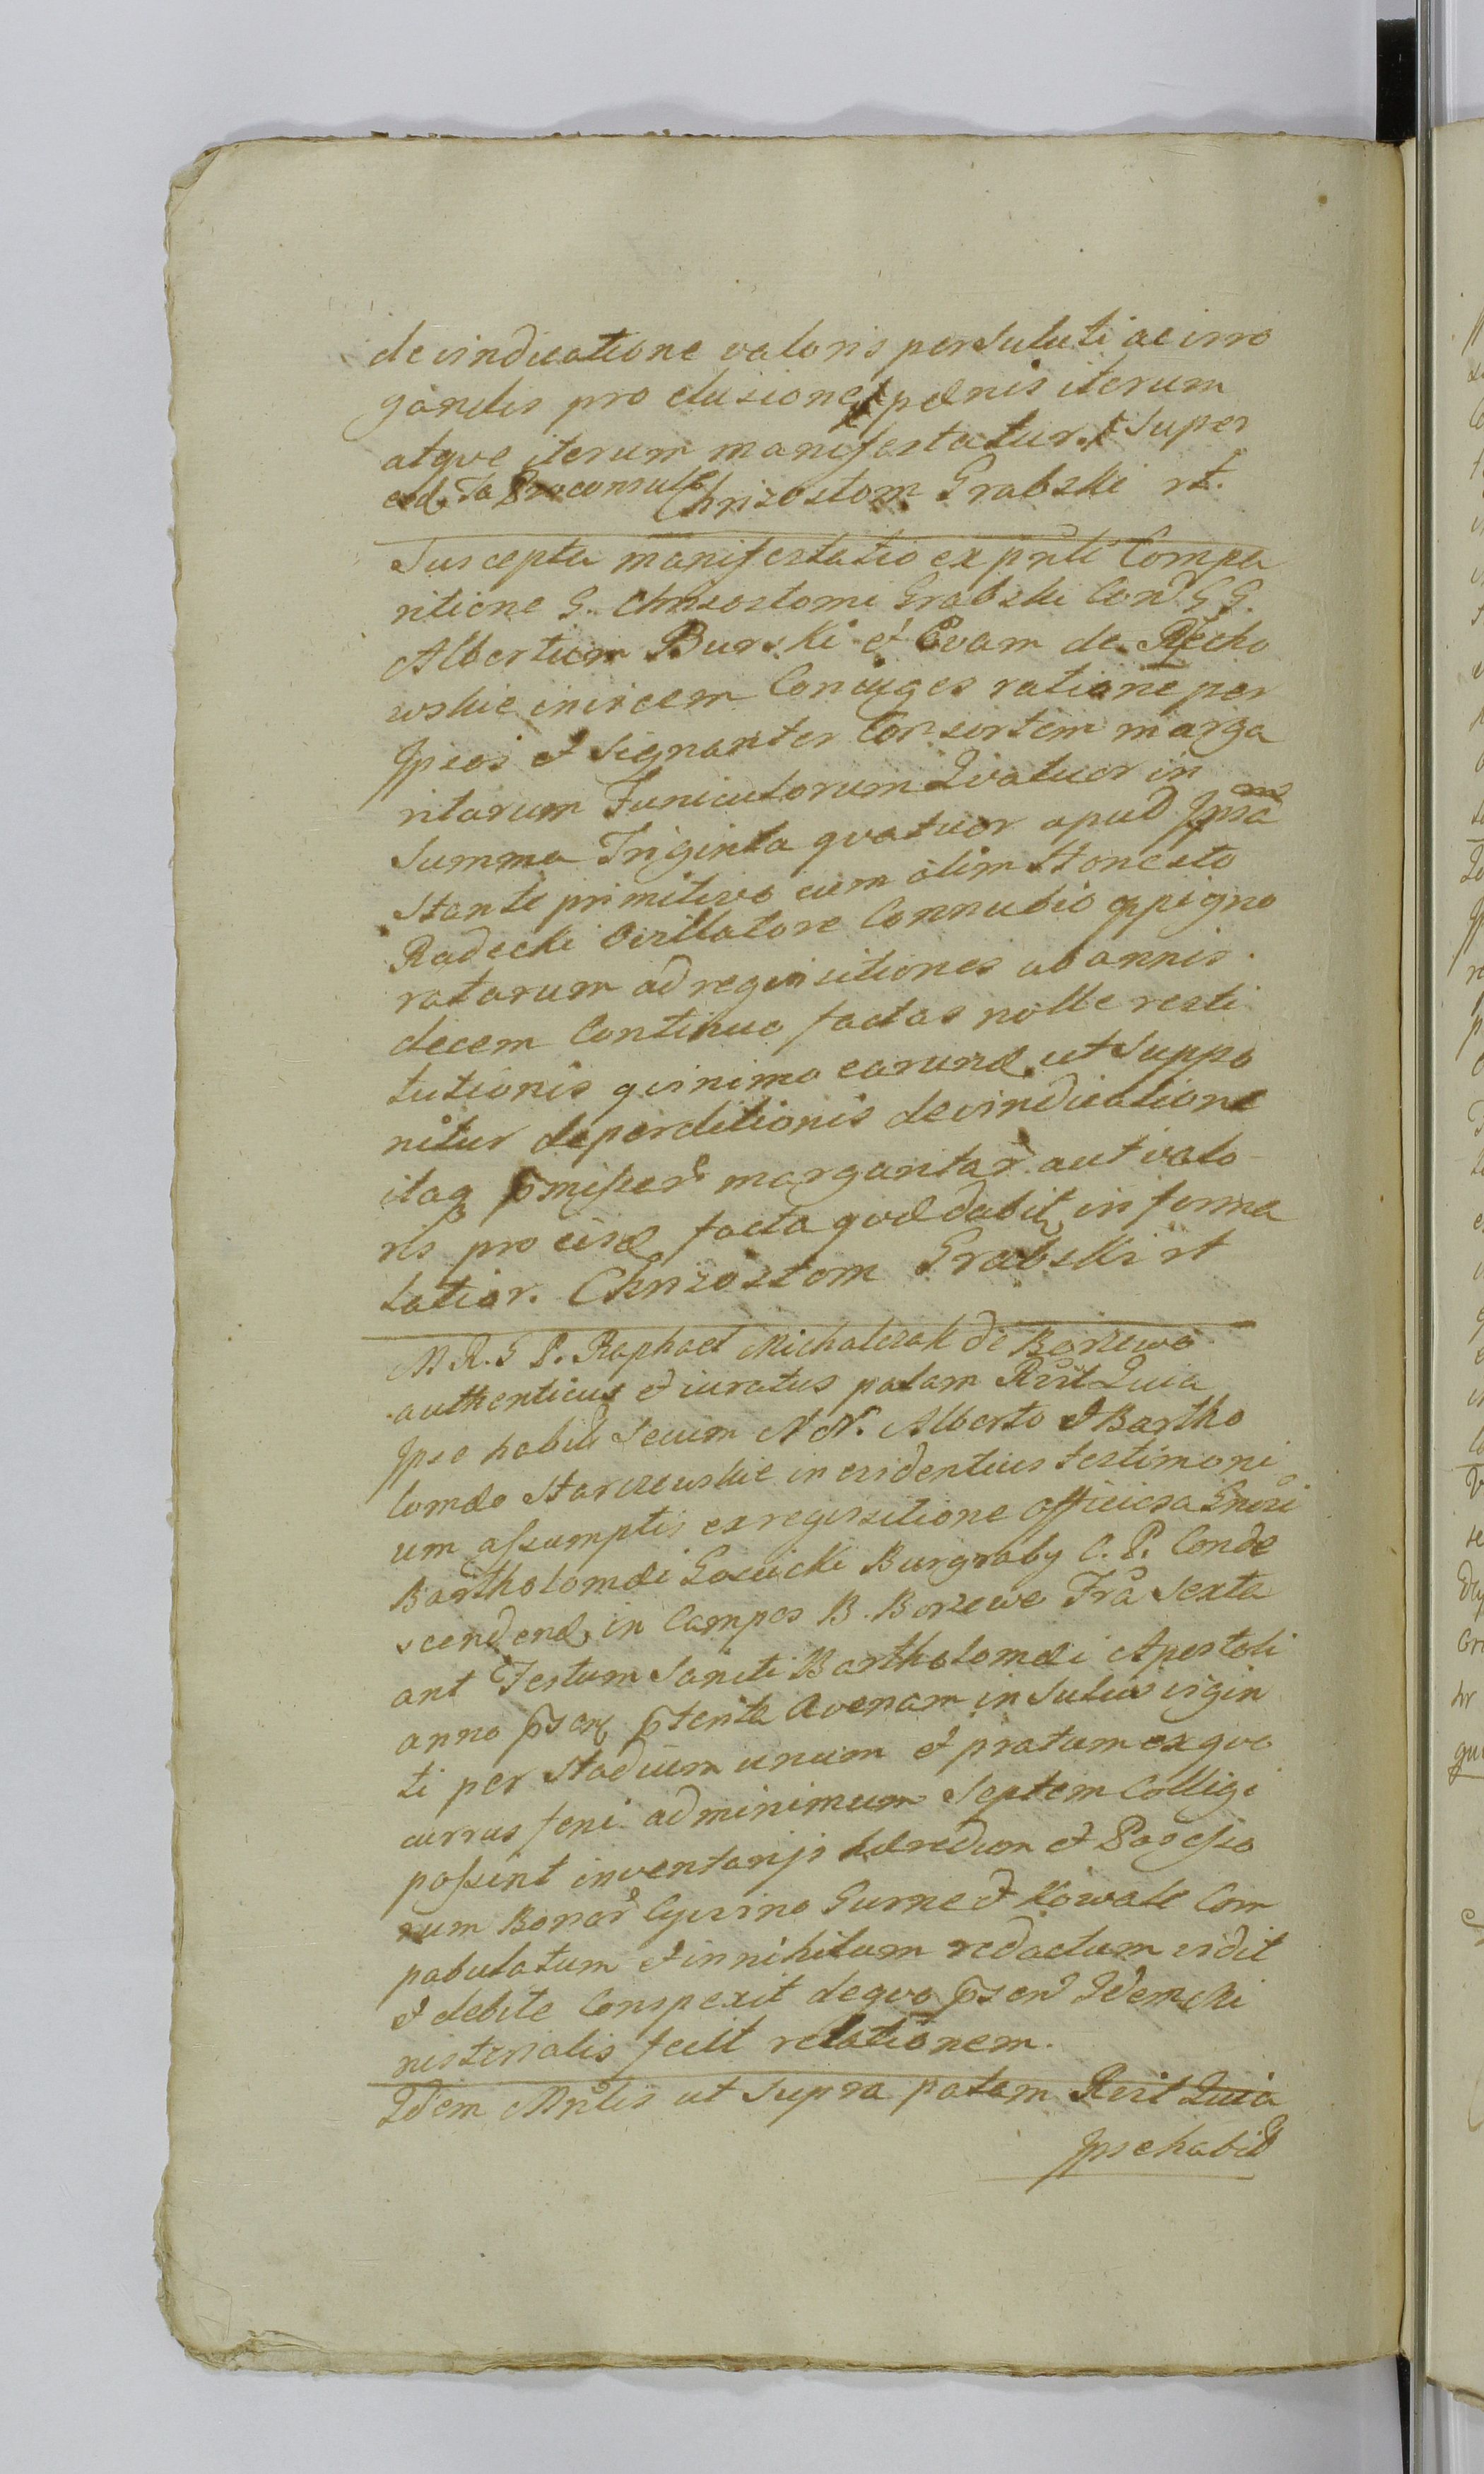 devindicatione valoris persoluti ac irro
gandis pro elusione pænis iterum
atqve iterum manifestatur. Super
eod. Ja Proconsule Chrizostom Grabski rt.
Suscepta manifestatio ex pnti Compa
ritione G. Chrisostomi Grabski Con GG.
Albertum Burski et Evam de Rycho
wskie invicem Coniuges ratione per
Ipsos et signanter Consortem marga
ritarum Funiculorum Qvatuor in
Summa Triginta qvatuor apud Ipsam
Stante primitivo cum olim Honesto
Radecki Oisllatore Connubio oppigno
ratarum ad reqvisitiones ab annis
decem Continuo factas nolle resti
tutionis qvinimo earund. ut suppo
nitur deperditionis devindicatione
itaq pmissar margaritar aut valo-
ris pro eisd facta qvæ dabitr in forma
latior. Chrizostom Grabski rt
M. R. G P. Raphael Michalczak de Borzewo
authenticus et iuratus palam Rcit Quia
Ipse habit secum NN. Alberto et Bartho
lomæo Starczewskie in evidentius testimoni
um assumptis ex reqvisitione officiosa Gnosi
Bartholomæi Gocuicki Burgraby C. P. Conde
scendend. in Campos B. Borzewo Fra sexta
ant Festum Sancti Bartholomæi Apostoli
anno psen ptenta Avenam in sulcis vigin
ti per stadium unum et pratum ex qvo
currus feni ad minimum septem Colligi
possint inventarijs hæredum et Possesso
rum Bonor Cepvino Gurne et Kowale Com
pabulatum et in nihilum redactum vidit
et debite Conspexit de qvo psen Idem Mi
nisterialis fecit relationem.
Idem Mnlis ut supra palam Rcit Quia
Ipse habit